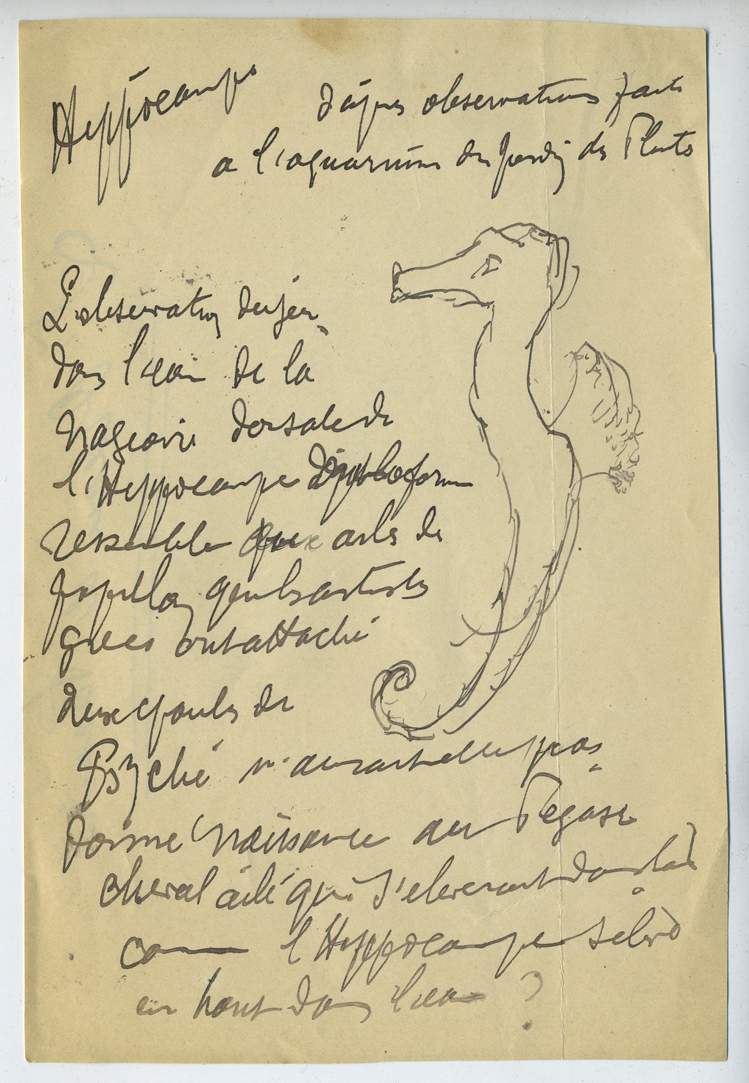 Hippocampe
d'après observations faites
a l'aquarium du Jardin des Plantes
L'observation du jeu
dans l'eau de la
nageoire dorsale de
l'Hippocampe
ressemble aux ailes de
papillon que les artistes
grecs ont attaché
aux epaules de
Psyché n'aurait elle pas
donné naissance au Pegase
cheval ailé qui s'elevant dans
comme l'Hippocampe
en haut dans l'eau ?